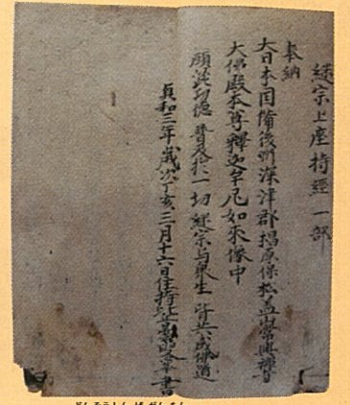 継宗上座持経一部
奉納
大日本国備後州深津郡椙原保松盖山常興禅寺
大佛殿本尊釋迦牟尼如来像中
願以功徳普及於一切継宗与衆生皆共成佛道
貞和三年歳次丁亥三月十六日住持比丘
書